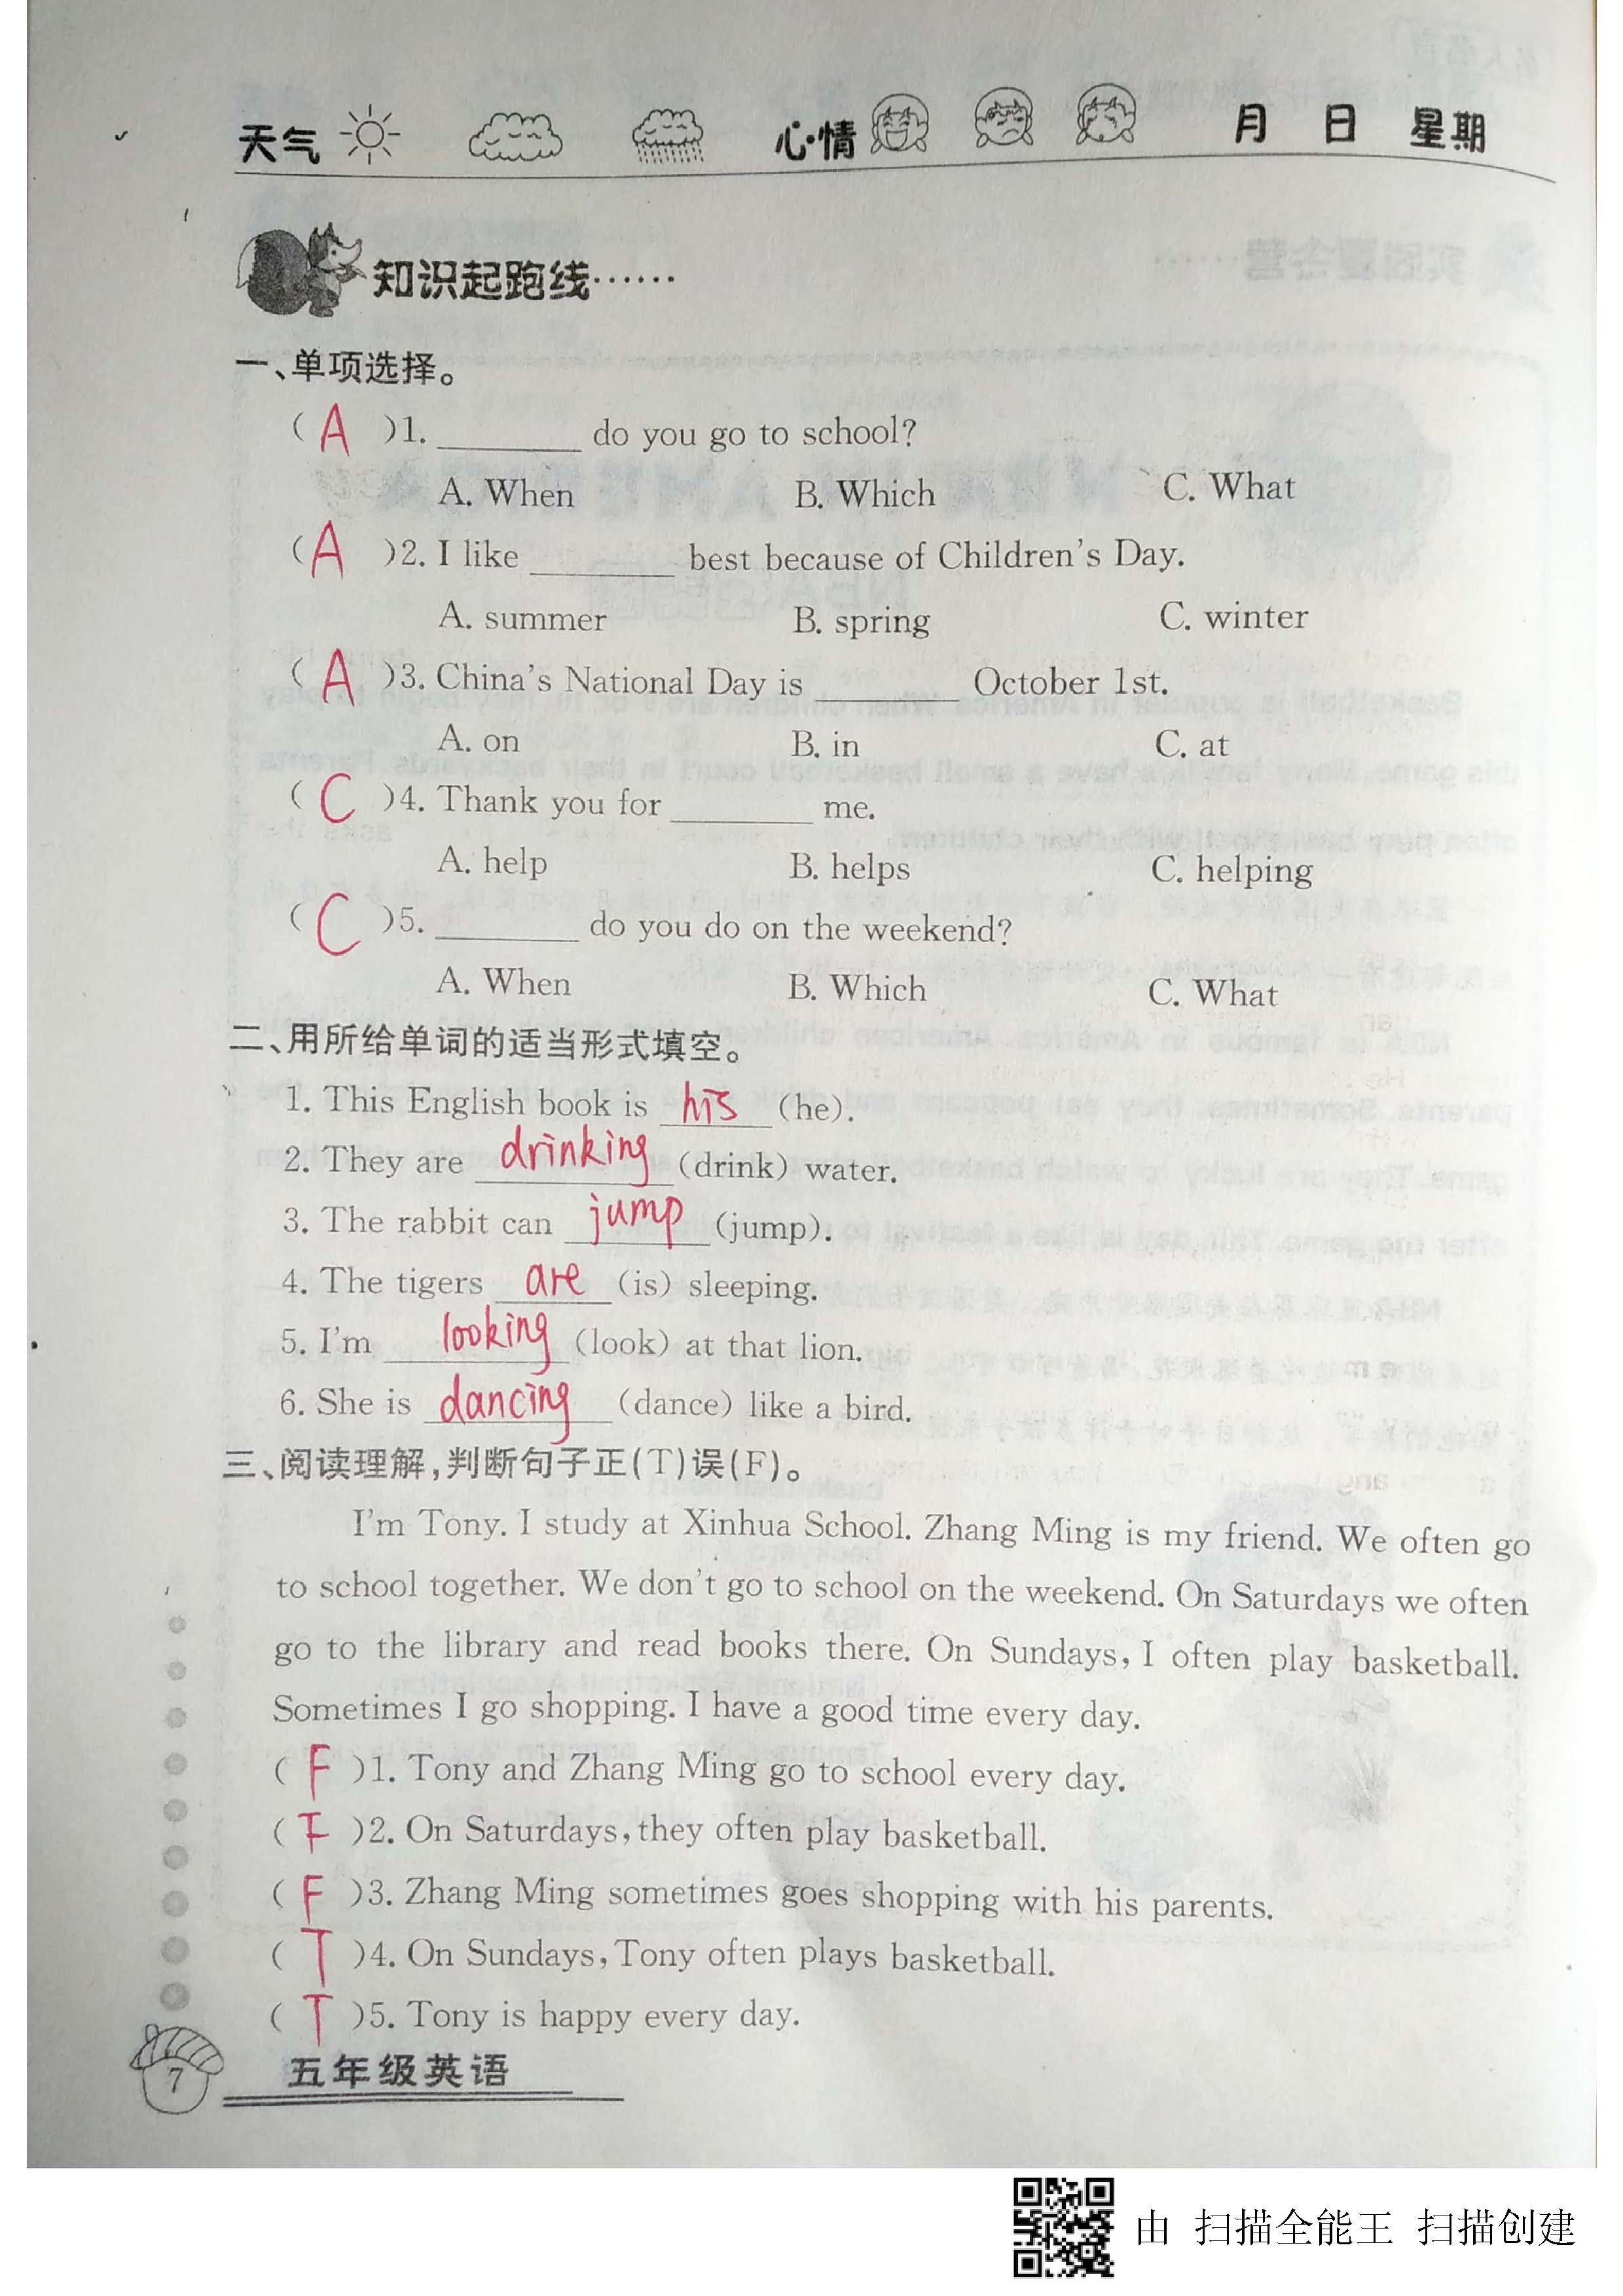 天气 心情 月 日 星期
知识起跑线……
一、单项选择。
( A )1. ________ do you go to school?
A. When B. Which C. What
( A )2. I like ________ best because of Children's Day.
A. summer B. spring C. winter
( A )3. China's National Day is ________ October 1st.
A. on B. in C. at
( C )4. Thank you for ________ me.
A. help B. helps C. helping
( C )5. ________ do you do on the weekend?
A. When B. Which C. What
二、用所给单词的适当形式填空。
1. This English book is his (he).
2. They are drinking (drink) water.
3. The rabbit can jump (jump).
4. The tigers are (is) sleeping.
5. I'm looking (look) at that lion.
6. She is dancing (dance) like a bird.
三、阅读理解,判断句子正(T)误(F)。
I'm Tony. I study at Xinhua School. Zhang Ming is my friend. We often go
to school together. We don't go to school on the weekend. On Saturdays we often
go to the library and read books there. On Sundays, I often play basketball.
Sometimes I go shopping. I have a good time every day.
( F )1. Tony and Zhang Ming go to school every day.
( F )2. On Saturdays, they often play basketball.
( F )3. Zhang Ming sometimes goes shopping with his parents.
( T )4. On Sundays, Tony often plays basketball.
( T )5. Tony is happy every day.
7 五年级英语
由 扫描全能王 扫描创建